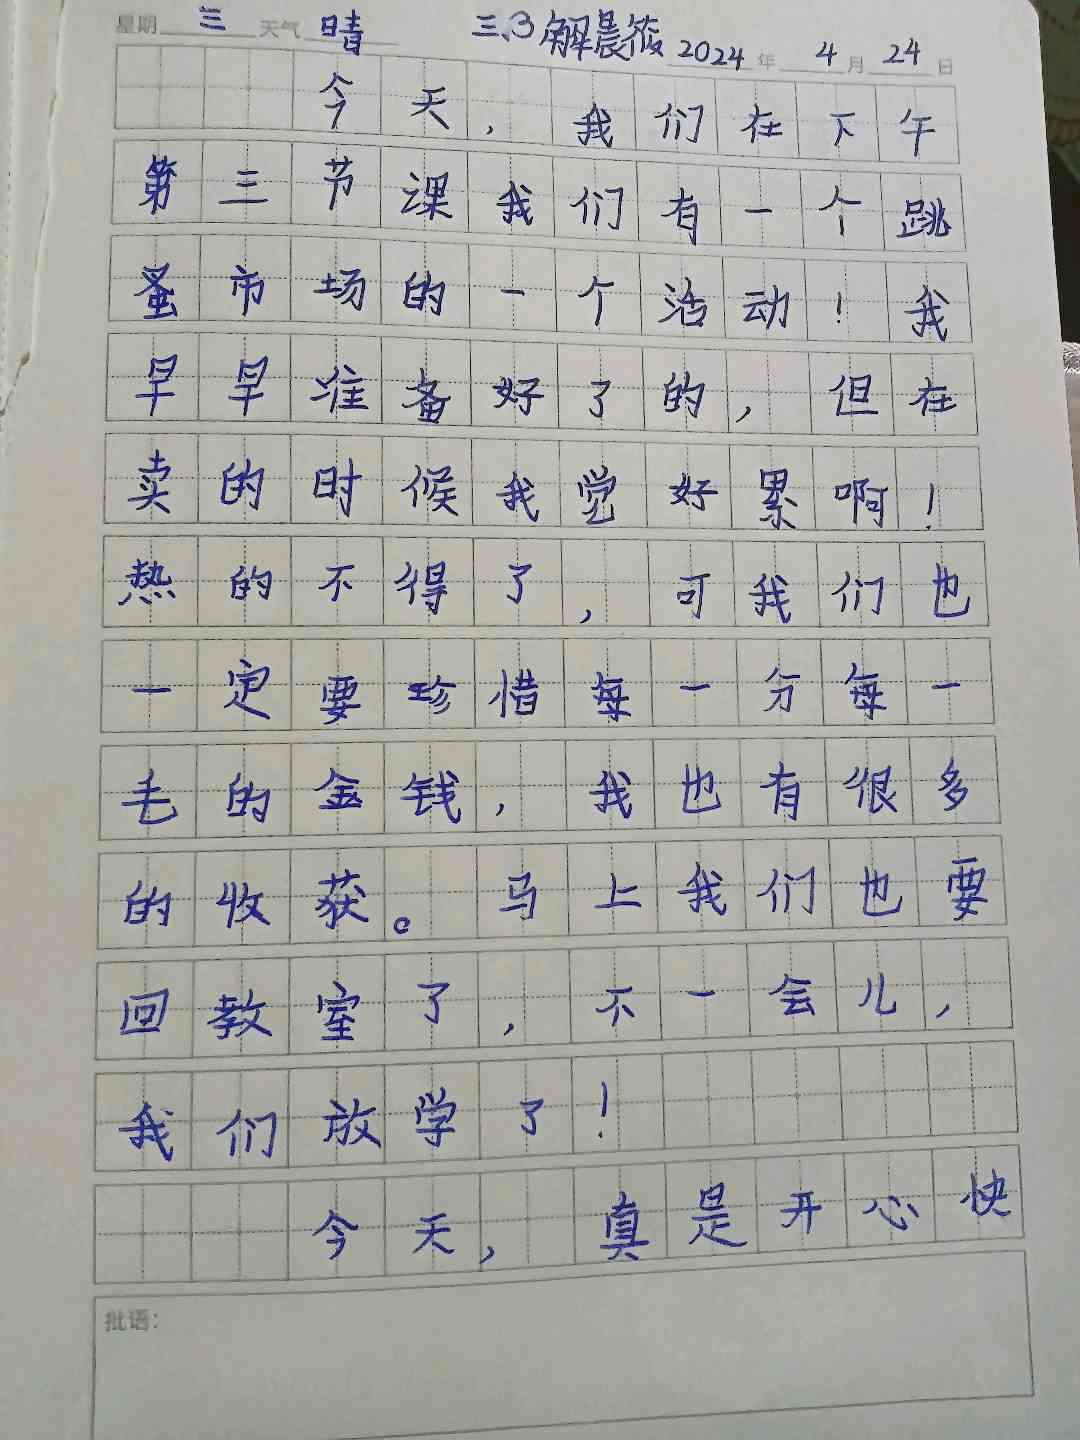 星期三 天气晴 三.3解晨筱 2024年4月24日
今天，我们在下午
第三节课我们有一个跳
蚤市场的一个活动！我
早早准备好了的，但在
卖的时候我觉好累啊！
热的不得了，可我们也
一定要珍惜每一分每一
毛的金钱，我也有很多
的收获。马上我们也要
回教室了，不一会儿，
我们放学了！
今天，真是开心快
批语：